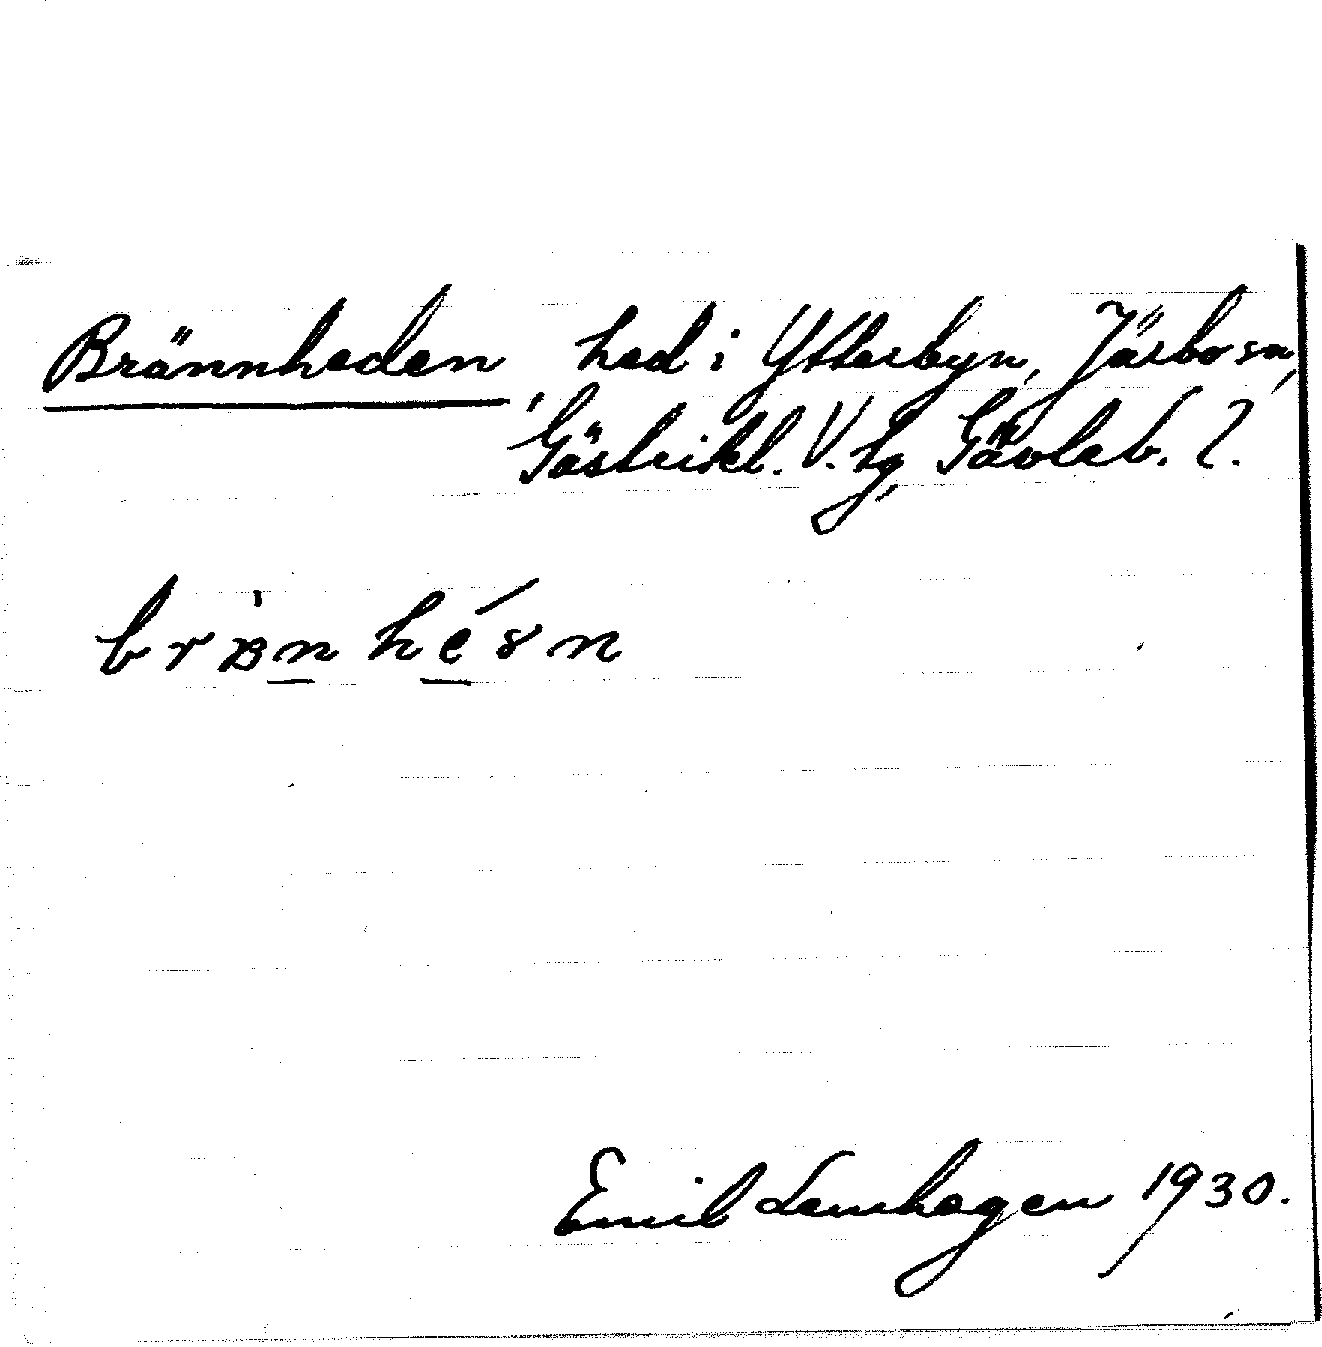 Brännheden, hed i Ytterbyn, Järbo sn,
Gästrikl. V. tg, Gävleb. l.
Emil Lemhagen 1930.